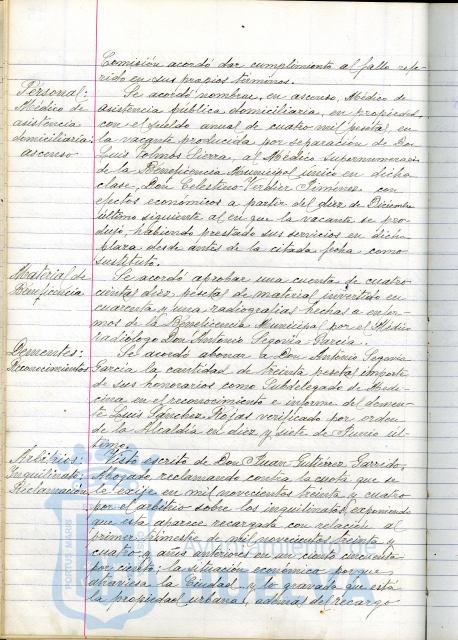 Comisión acordó dar cumplimiento al fallo refe-
rido en sus propios términos.
Personal:
Médico de
asistencia
domiciliaria:
ascenso
Se acordó nombrar, en ascenso, Médico de
asistencia pública domiciliaria, en propiedad,
con el sueldo anual de cuatro mil pesetas, en
la vacante producida por separación de Don
Luis Sierra, al Médico Supernumerario
de la Beneficencia Municipal único en dicha
clase, Don Celestino Verdier Jiménez, con
efectos económicos a partir del diez de Diciembre
último siguiente al en que la vacante se pro-
dujo, habiendo prestado sus servicios en dicha
plaza desde antes de la citada fecha como
sustituto.
Material de
Beneficencia
Se acordó aprobar una cuenta de cuatro-
cientas diez pesetas de material invertido en
cuarenta y una radiografías hechas a enfer-
mos de la Beneficencia Municipal por el Médico
radiólogo Don Antonio Segovia García.
Dementes:
Reconocimientos
Se acordó abonar a Don Antonio Segovia
García la cantidad de treinta pesetas importe
de sus honorarios como Subdelegado de Medi-
cina en el reconocimiento e informe del demen-
te Luis Sánchez Rojas verificado por orden
de la Alcaldía en diez y siete de Junio úl-
timo.
Arbitrios:
Inquilinato:
Reclamación
Visto escrito de Don Juan Gutiérrez Garrido,
Abogado, reclamando contra la cuota que se
le exije en mil novecientos treinta y cuatro
por el arbitrio sobre los inquilinatos, exponiendo
que esta aparece recargada con relación al
primer trimestre de mil novecientos treinta y
cuatro y años anteriores en un ciento cincuenta
por ciento; la situación económica porque
atraviesa la Ciudad, y lo gravada que está
la propiedad urbana, además del recargo